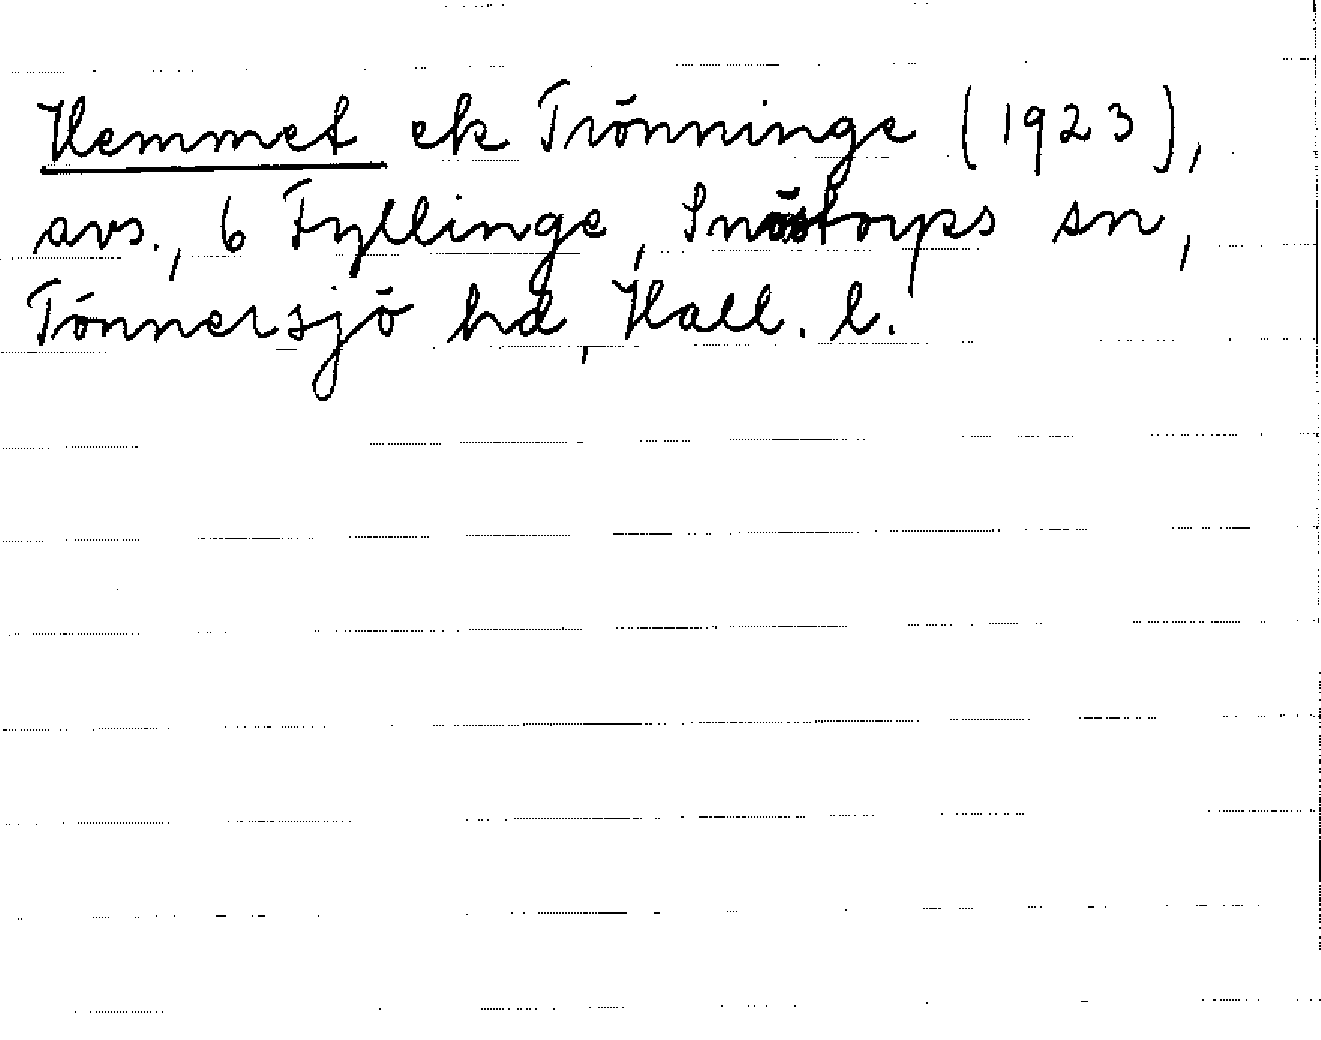 Hemmet ek Trönninge (1923),
avs., 6 Fyllinge, Snöstorps sn,
Tönnersjö hd, Hall. l.